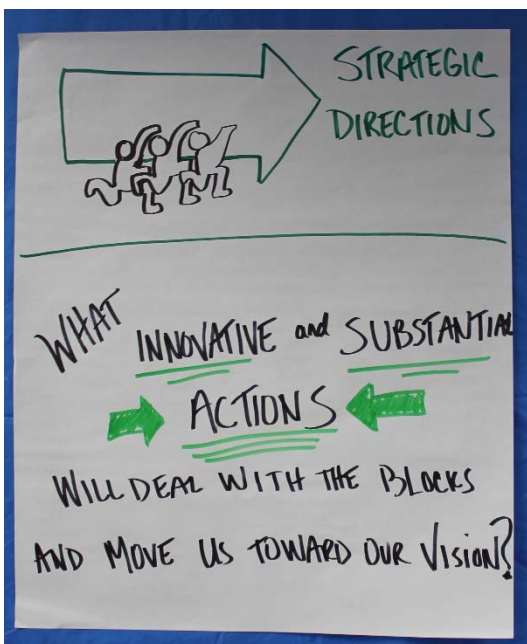 STRATEGIC
DIRECTIONS
WHAT INNOVATIVE and SUBSTANTIAL
ACTIONS
WILL DEAL WITH THE BLOCKS
AND MOVE US TOWARD OUR VISION?